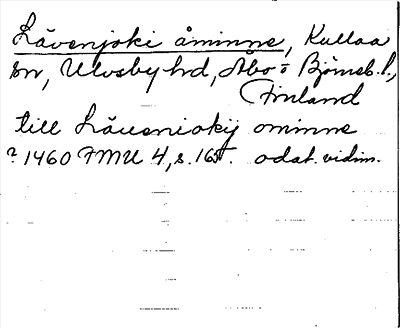 Lävenjoki åminne, Kullaa
sn, Ulvsby hd, Åbo o Björneb. l.,
Finland
till Läueniokij ominne
? 1460 FMU 4, s. 165. odat. vidim.